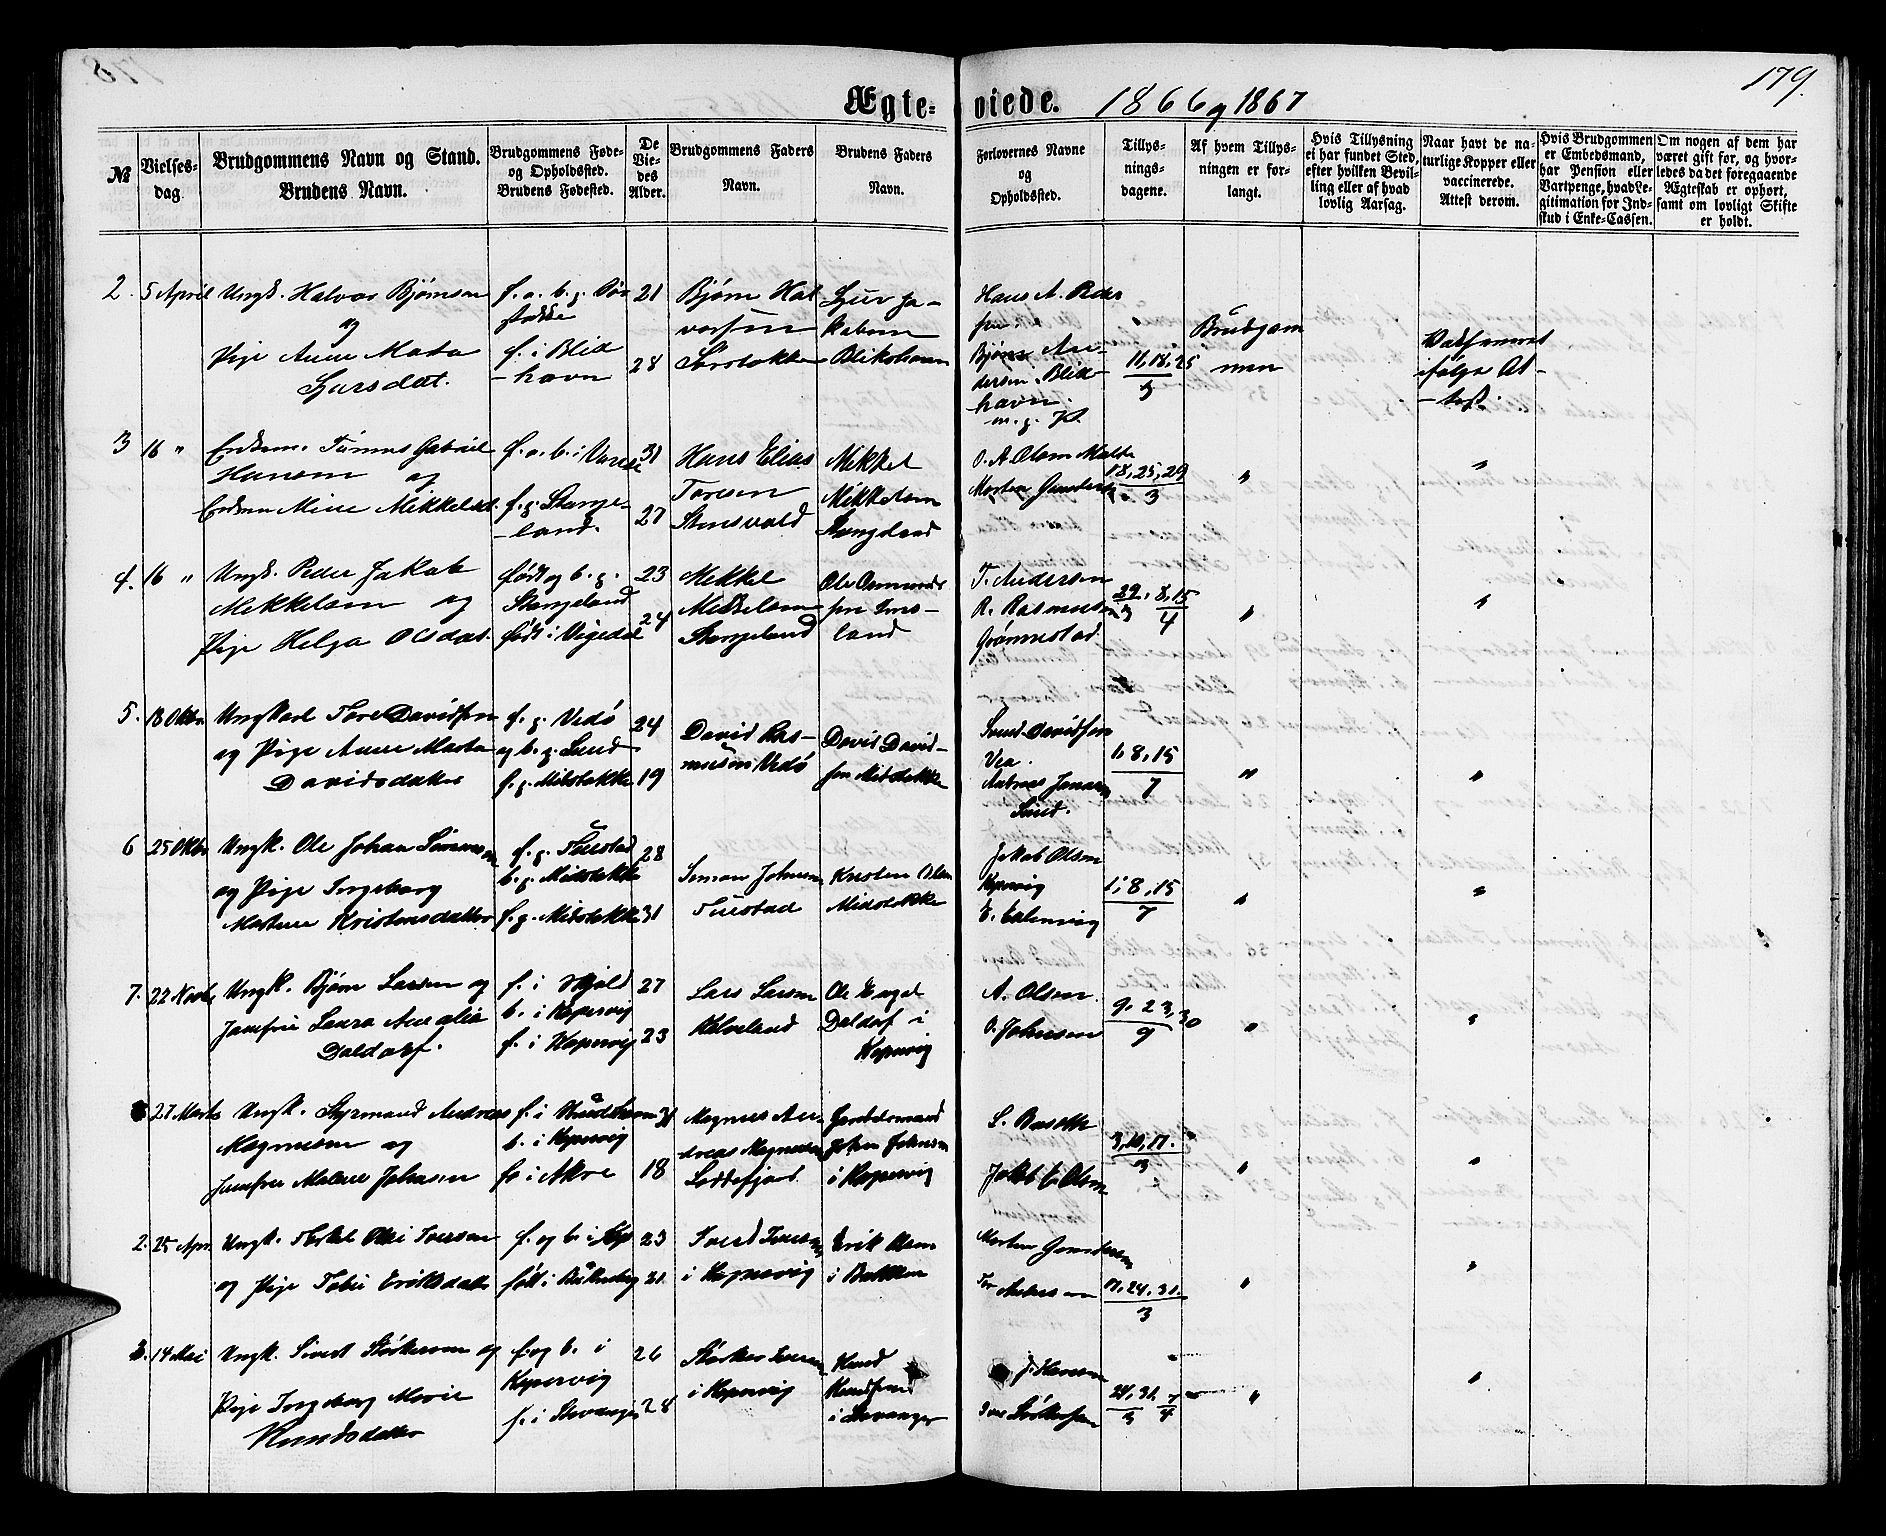 179.
Ægteviede. 1866 og 1867
№
Vielses-
dag.
Brudgommens Navn og Stand.
Brudens Navn.
Brudgommens Føde-
og Opholdssted.
Brudens Fødested.
De
Vie-
des
Alder.
Brudgommens Faders
Navn.
Brudens Faders
Navn.
Forlovernes Navne
og
Opholdssted.
Tillys-
nings-
dagene.
Af hvem Tillys-
ningen er for-
langt.
Hvis Tillysning
ei har fundet Sted,
efter hvilken Bevil-
ling eller af hvad
lovlig Aarsag.
Naar havt de na-
turlige Kopper eller
vaccinerede.
Attest derom.
Hvis Brudgommen
er Embedsmand,
har Pension eller
Vartpenge, hvad Le-
gitimation for Ind-
skud i Enke-Cassen.
Om nogen af dem har
været gift før, og hvor-
ledes da det foregaaende
Ægteskab er ophørt,
samt om lovligt Skifte
er holdt.
2. 5 April
Ungk. Halvor Bjørnsen
og
Pige Anne Marta
f. i Blid
-havn
21
28
Bjørn Hal
vorsen
Hans A. Peder
sen.
Bjørn An-
dersen, Blid-
havn.
11, 18, 25
3
Brudgom
men
ifølge At-
-test.
3 16 "
Enkem. Tønnes Gabriel
Hansen og
Enken Mine Mikkelsd.
f. g. Stange-
-land.
31
27
Hans Elias
Toresen
Mikkel
Mikkelsen
Stangeland
18, 25, 29
3
"
"
4. 16 "
Ungk. Peder Jakob
Mikkelsen og
Pige Helga Olsdat.
født og b. g.
Stangeland
født i Vigedal
23
24
Mikkel
Mikkelsen
Stangeland
Ole Osmunds
sen
land
T. Andersen
R. Rasmussen
Grønnestad.
29. 8, 15
3 4
"
"
5. 18 Oktbr
Ungkarl Tore Davidsen
og Pige Anne Marta
Davidsdatter
f. g. Vedø
og b. g. Sund
f. g. Midstokke
24
19
David Ras-
mussen Vedø
David David-
sen Midstokke
Svend Davidsen
Vea.
Andreas Jansen
Sund.
1, 8, 15
7
"
"
6 25 Oktbr
Ungk. Ole Johan Simonsen
og Pige Ingeborg
Martine Kristensdatter
b. g. Midstokke
f. g. Midstokke
28
31
Simon Johnsen
Kristen Olsen
Midstokke
Jakob Olsen
Kopervig
1, 8, 15
7
"
"
7. 22 Novbr
Ungk. Bjørn Larsen og
Jomfrue Laura Amalia
Daldorf.
f. i Skjold
b. i Kopervig
f. i Kopervig
27
23
Lars Larsen
Ole Engel
Daldorf i
Kopervig
A. Olsen.
O. Johnsen
9. 23, 30
9
"
"
27 Marts
Ungk. Styrmand Andreas
Magnusen og
Jomfrue Malene Johnsen
b. i Kopervig
f. i Akre
31
18
Magnus An-
dreas Magnusen
Johan Johnsen
i Kopervig
Jakob E. Olsen
3, 10, 17.
3
"
"
2. 25 Apr.
og Pige Tobie Eriksdatter
f. og b. i Kop
23
21.
i Kopervig
Erik Olsen
i Bakken
Morten Gundersen
17, 24, 31.
3
"
"
3. 14 Mai
Ungk. Sivert Størkersen og
Pige Ingeborg Marie
Knudsdatter
f. og b. i
Kopervig
f. i Stavanger
26
28
Størker Iversen
i Kopervig
Knud
Knudsen
i Stavanger
J. Hansen
Iver Størkersen
24, 31, 7
3 4
"
"